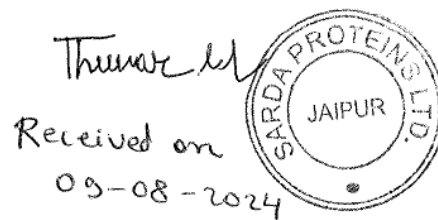 Received on
09-08-2024
SARDA PROTEINS LTD.
JAIPUR